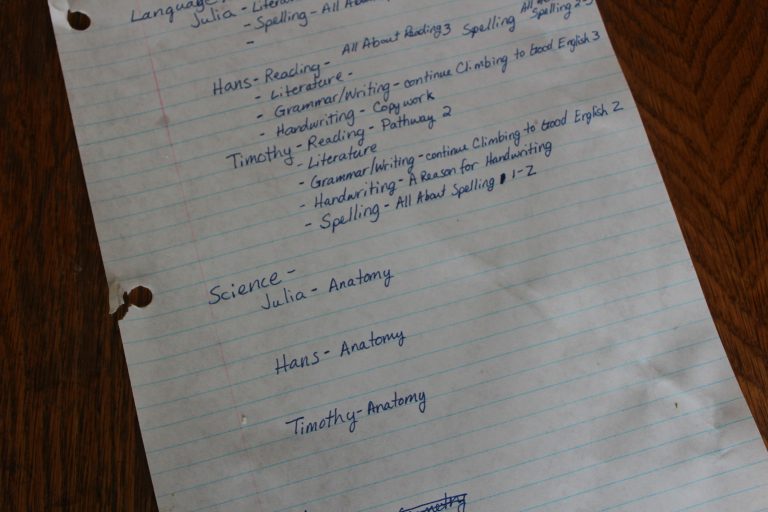 Language
Julia - Litera
- Spelling - All Abo
-
Hans - Reading - All About Reading 3 Spelling All
Spelling 2-3
- Literature -
- Grammar/Writing - continue Climbing to Good English 3
- Handwriting - Copywork
Timothy - Reading - Pathway 2
- Literature
- Grammar/Writing - continue Climbing to Good English 2
- Handwriting - A Reason for Handwriting
- Spelling - All About Spelling 1-2
Science -
Julia - Anatomy
Hans - Anatomy
Timothy - Anatomy